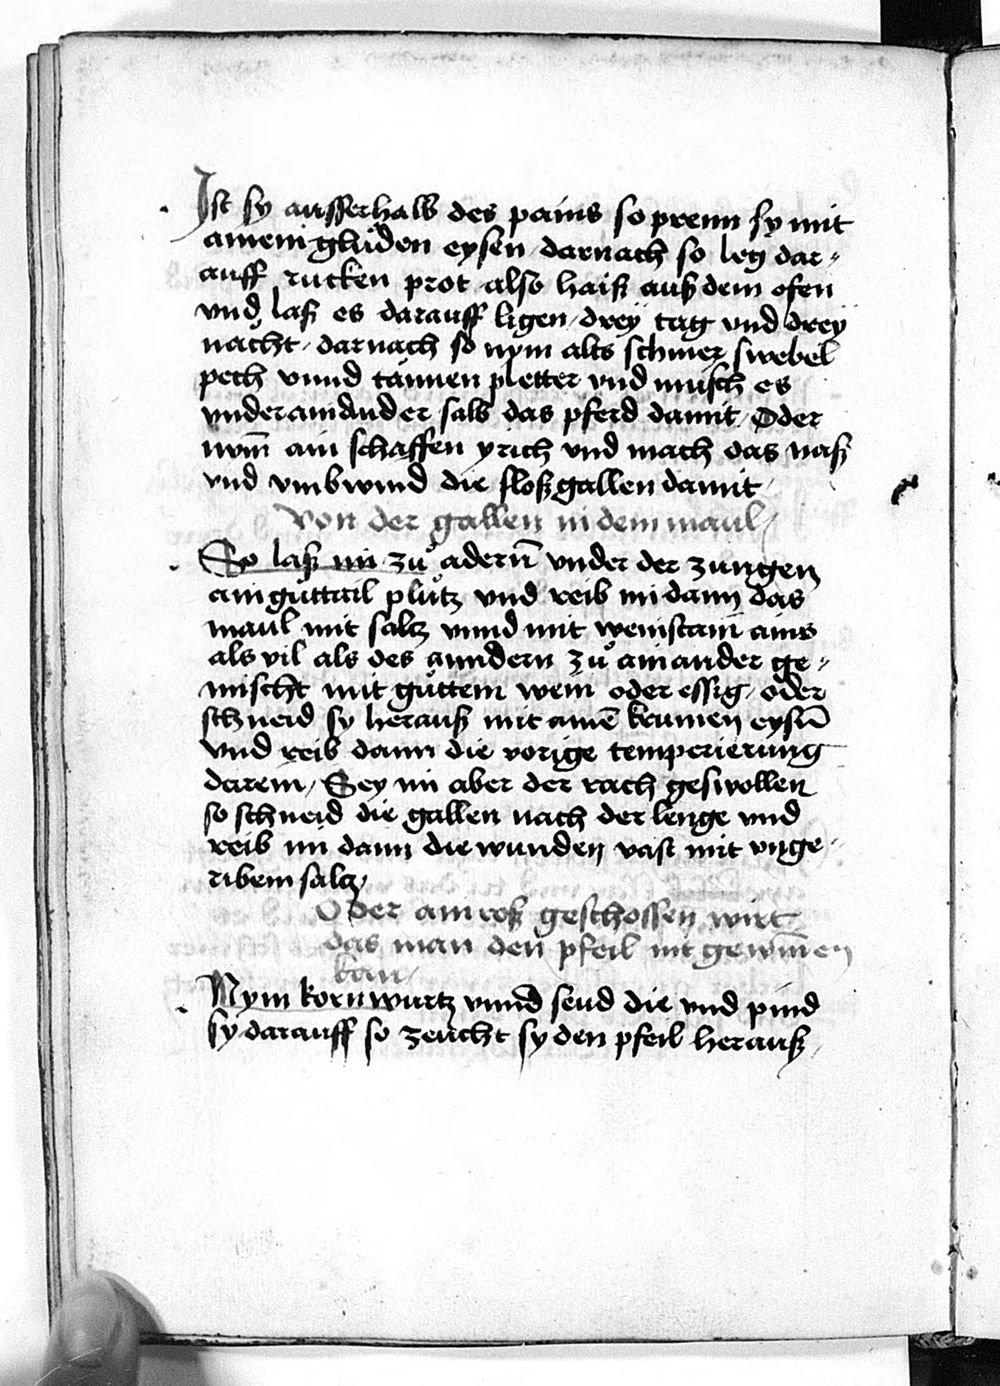 Ist sy ausserhalb des pains so prenn sy mit
ainem glůden eysen / darnach so leg dar-
auff rucken prot also haiß auß dem ofen
vnd laß es darauff ligen / drey tag vnd drey
nacht / darnach so nym alts schmer swebel
pech vnnd tannen pletter vnd misch es
vnder ainander salb das pferd damit / Oder
nym ain schaffen yrich vnd mach das naß
vnd vmbwind die floßgallen damit /
Von der gallen in dem maul /
So laß im zů adern̄ vnder der zungen
ain guttail plůtz vnd reib im dann das
maul mit saltz vnnd mit weinstain ains
als vil als des anndern zů ainander ge-
mischt mit gůttem wein oder essig / oder
schneid sy herauß mit amē krumen eysen̄
vnd reib dann die vorige temperierung
darein / Sey im aber der rach geswollen
so schneid die gallen nach der lenge vnd
reib im dann die wunden vast mit vnge-
ribem saltz /
Oder ain roß geschossen wirt
das man den pfeil nit gewin̄en
kan /
Nym kornwurtz vnnd seud die vnd pind
sy darauff so zeucht sy den pfeil herauß /